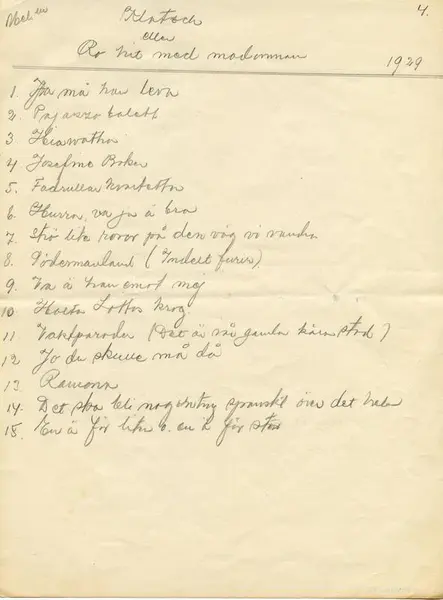 4.
Klatsch
eller
Ro hit med madammen
1929
1 Ja må han leva
2. Pajazzo balett
3 Hiawatha
4 Josefine Baker
5. Fadrullan
6 Hurra, va ja ä bra
7. Strö lite rosor på den väg vi vandra
8. Södermanland (
9 Va ä han emot mej
10. Lottas krog
11 Vaktparaden (Det är vår gamla kära stad)
12 Jo du skulle må då
13. Ramona
14. Det ska bli någonting spanskt över det hela
15. En ä för liten o. en ä för stor